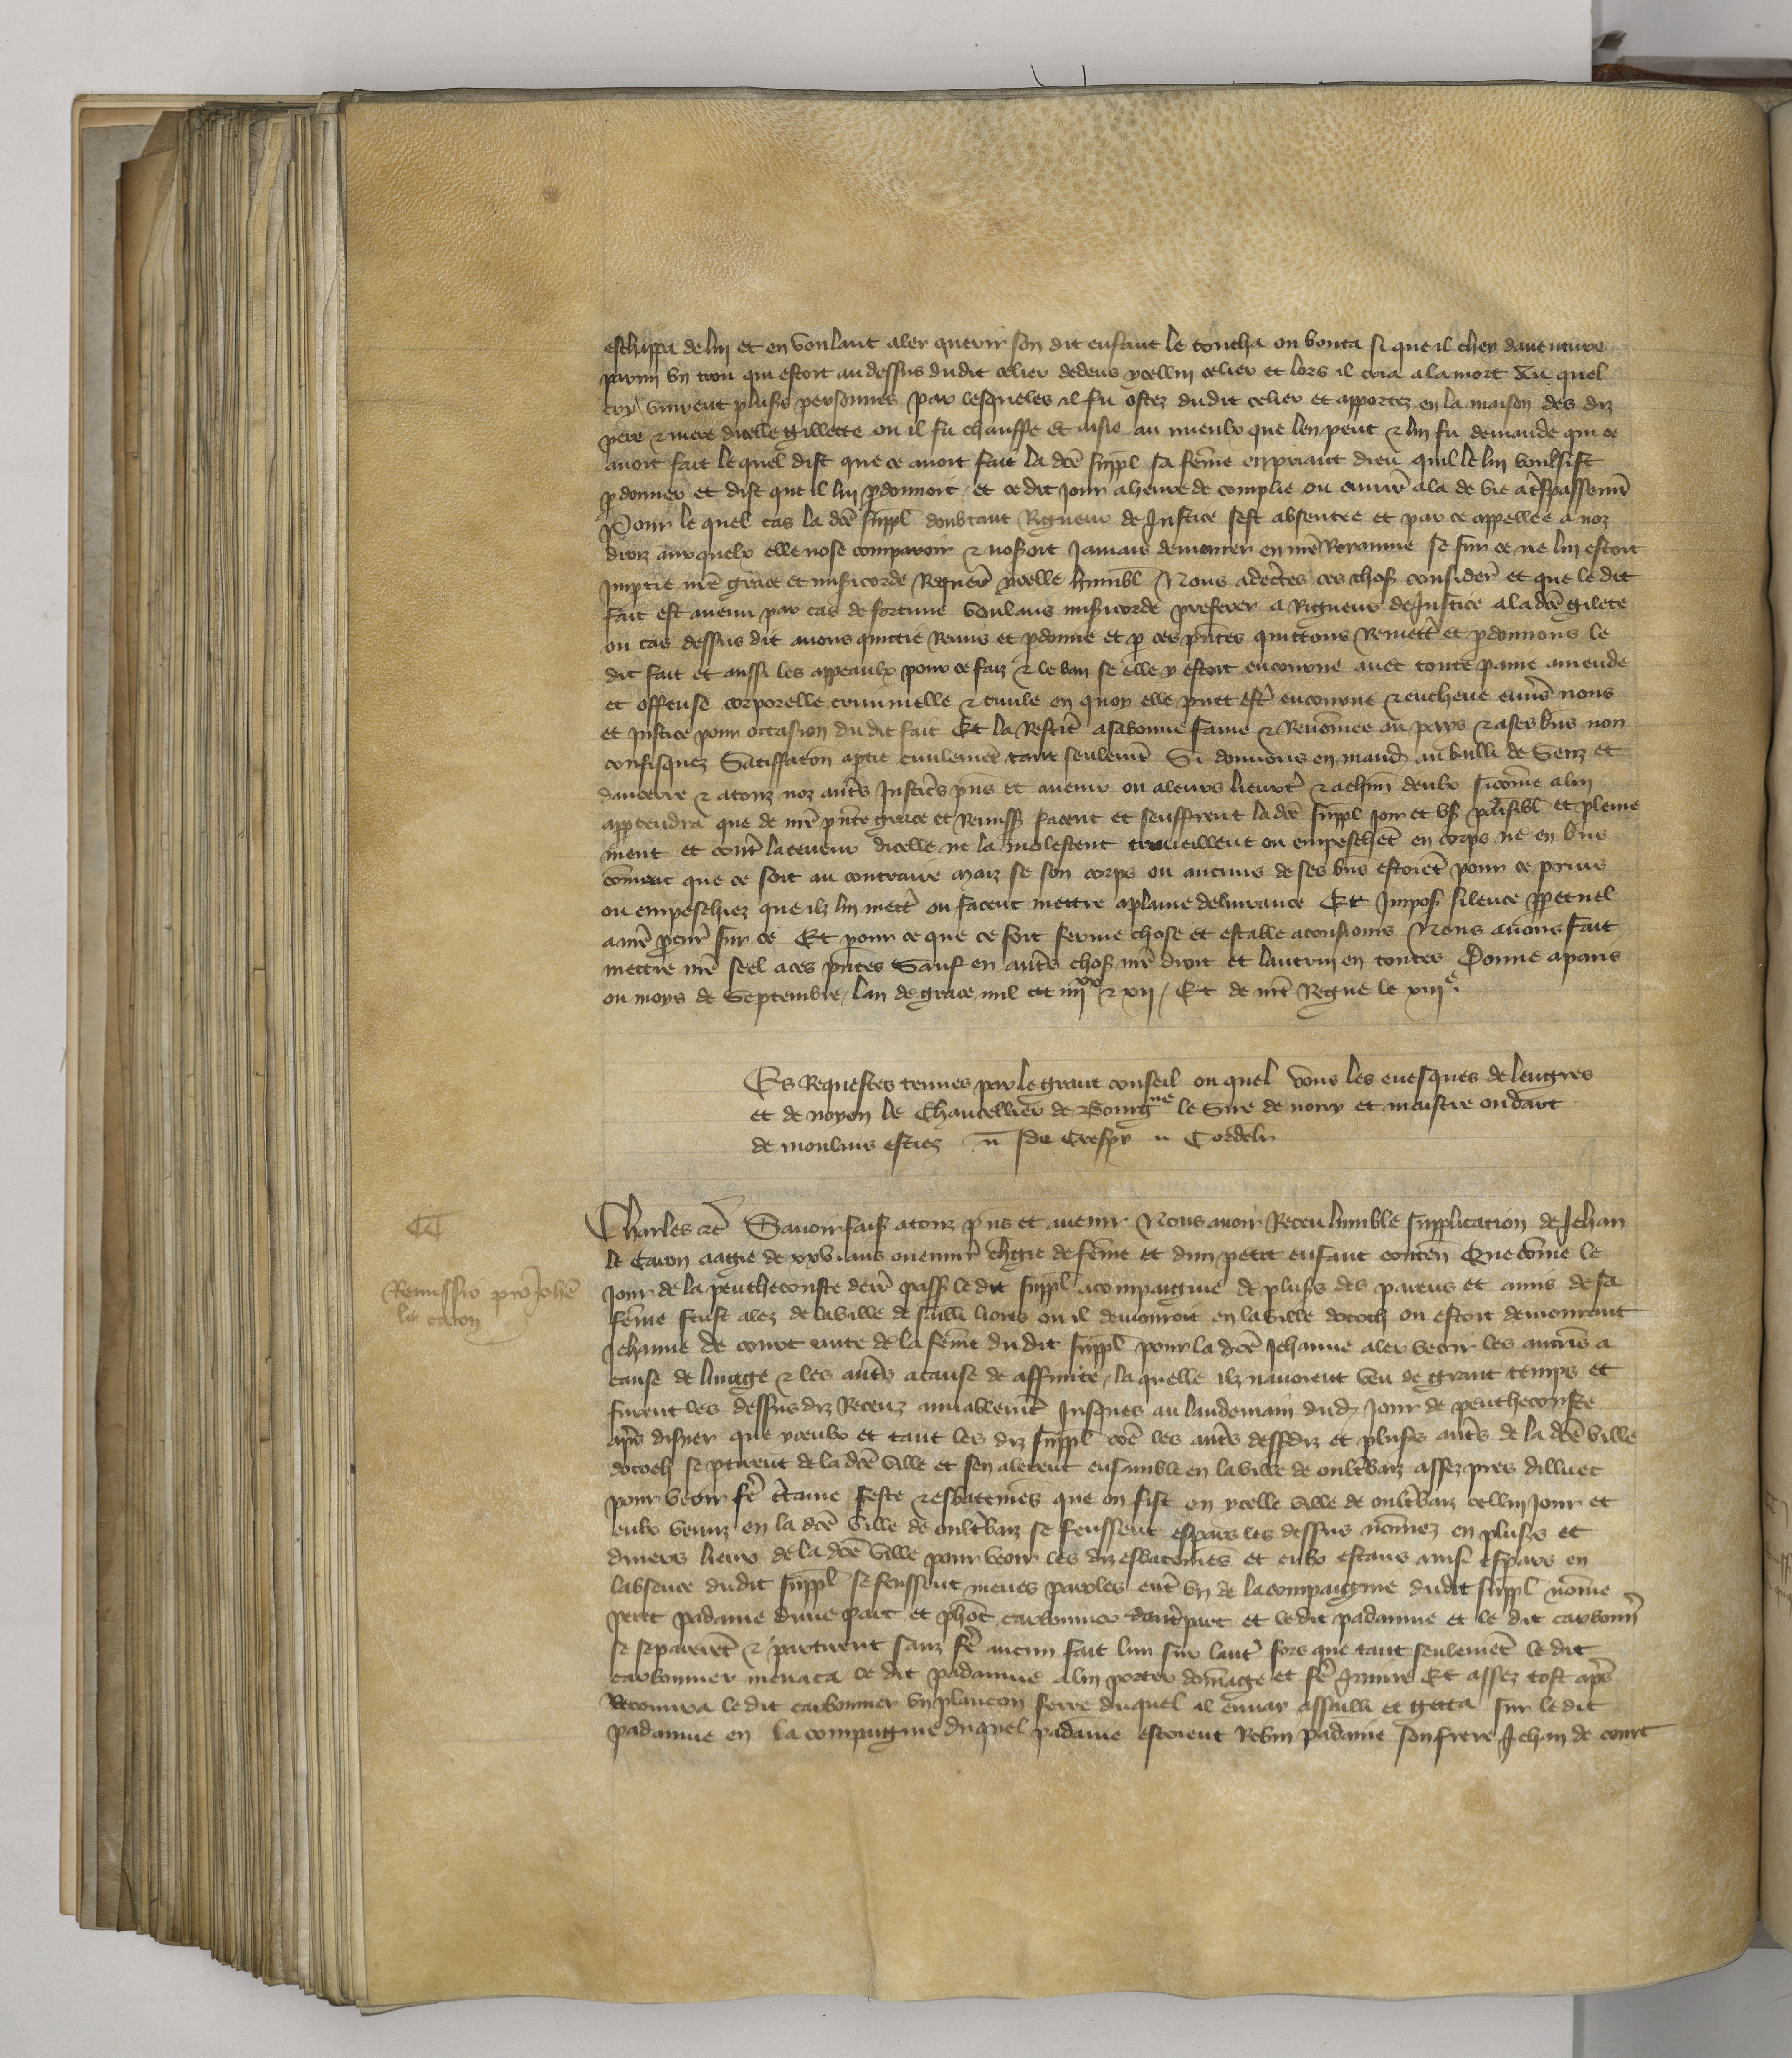 eschappa de lui et en voulant aler querir son dit enfant le toucha ou bouta si que il chey daventure
parmi un trou qui estoit au dessus dudit celier dedens ycellui celier et lors il cria a la mort Au quel
cry vinrent plus̃s personnes par lesqueles il fu ostez dudit celier et apportez en la maison des diz
pere & mere dicelle gillette ou il fu chauffe et aisie au mieulx que len peut & lui fu demande qui ce
avoit fait le quel dist que ce avoit fait la dc̃e suppl̃ sa fem̃e en priant dieu quil le lui voulsist
ꝑdonner et dist que il lui ꝑdonnoit / et ce dit jour a heure de complie ou envir̃ ala de vie a tr̃spassem̃t
Pour le quel cas la dc̃e suppl̃ doubtant Rigueur de Justice sest absentee et par ce appellee a noz
droiz auxquelx elle nose comparoir & noseroit Jamais demourer en nr̃e Royaume se sur ce ne lui estoit
impartie nr̃e grace et misicorde Requer̃ ycelle humbl̃ Nous adecertes ces chos̃ consider̃ et que le dit
fait est avenu par cas de fortune voulans misicorde preferer a Rigueur de Justice a la dc̃e gilete
ou cas dessus dit avons quittie Remis et ꝑdonne et ꝑ ces pñtes quittons Remett̃ et ꝑdonnons le
dit fait et aussi les appeaulx pour ce faiz & le ban se elle y estoit encourue avec toute paine amende
et offense corporelle criminelle & civile en quoy elle puet estr̃ encourue & encheue envers nous
et Justice pour occasion du dit fait Et la Restit̃ a sa bonne fame & Renom̃ee au pays & a ses biẽs non
confisquez Satiffacõn a ptie civilemẽt tant seulemẽt Si donnons en mand̃ au bailli de Senz et
daucerre & a touz noz autr̃s Justicr̃s pñs et avenir ou a leurs lieuxt̃ & a chũn deulx si com̃e a lui
appartendra que de nr̃e pñte grace et Remiss̃ facent et seuffrent la dc̃e suppl̃ joir et us̃ paisibl̃ et pleine
ment et contr̃ la teneur dicelle ne la molestent traveillent ou empeschẽt en corps ne en biẽs
com̃ent que ce soit au contraire Maiz se son corps ou aucuns de ses biẽs estoiẽt pour ce prins
ou empeschiez que ilz lui mett̃ ou facent mettre a plaine delivrance Et Impos̃ silence ꝑpetuel
a nr̃e procur̃ sur ce Et pour ce que ce soit ferme chose et estable a tousiours Nous avons fait
mettre nr̃e seel a ces pñtes Sauf en autr̃s chos̃ nr̃e droit et lautrui en toutes Donne a paris
ou moys de Septembre / lan de grace mil ccc iiiixx & xii / Et de nr̃e Regne le xiiie.
Es Requestes tenues par le grant conseil ou quel vous les evesques de lengres
et de noyon le Chancellier de Bourgne le Sire de novy et messire oudart
de moulins estiez ñ Ja de Crespy ñ Coedelr
Charles etc̃ Savoir fais̃ a touz pñs et avenir Nous avoir Receu lumble supplication de Jehan
le Caron aagie de xxvi. ans ou envir̃ chargie de fem̃e et dun petit enfant conten̄ Que com̃e le
Jour de la pentheconste derr̃ pass̃ le dit suppl̃ acompaignie de plus̃s des parens et amis de sa
fem̃e feust alez de la ville de sailli liores ou il demouroit en la ville dococh ou estoit demourant
Jehanne de court ante de la fem̃e du dit suppl̃ pour la dc̃e Jehanne aler veoir les aucũs a
cause de linage & les autr̃s a cause de affinite / la quelle ilz navoient veu de grant temps et
furent les dessus diz Receuz amiablemẽt Jusques au landemain dud̃ Jour de pentheconste
apr̃s disner que yceulx et tant les diz suppl̃ cõe les autr̃s dessusdiz et plus̃s autr̃s de la dc̃e ville
dococh se partirent de la dc̃e ville et sen alerent ensamble en la ville de oultrebaiz assez pres dilluec
pour veoir fr̃e c̃taine feste & esbatemẽs que on fist en ycelle ville de oultrebaiz cellui jour et
eulx venuz en la dc̃e ville de oultrebaiz se feussent espars les dessus nõmez en plus̃s et
divers lieux de la dc̃e ville pour veoir les diz esbatemẽs et eulx estans ainsi espars en
labsence dudit suppl̃ se feussent meues paroles entr̃ un de la compaignie dudit suppl̃ nom̃e
petit padamie dune part et phõt carbonnier dautr̃ part et le dit padamie et le dit carbonñ
se separerẽt & partirent sanz fr̃e aucun fait lun sur lautr̃ fors que tant seulemẽt le dit
carbonnier menaca le dit padamie a lui porter dom̃age et fr̃e Jniure Et assez tost apr̃s
Recouvra le dit carbonnier un plancon ferre duquel il envay assailli et getta sur le dit
padamie en la compaignie duquel padamie estoient Robin padamie son frere Jehan de court
CC
Remissio pro Johẽ
le caron